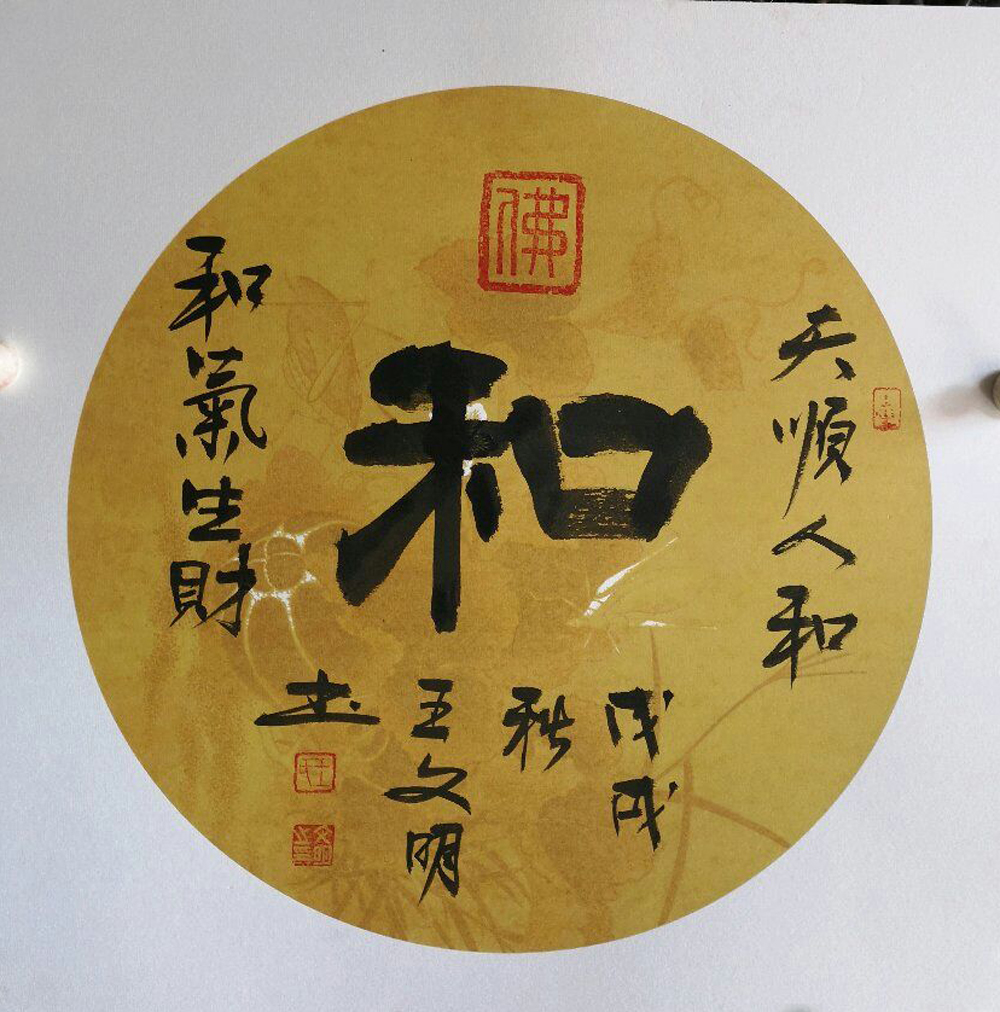 佛
天順人和
和
和氣生財
戊戌
秋
王文明
书